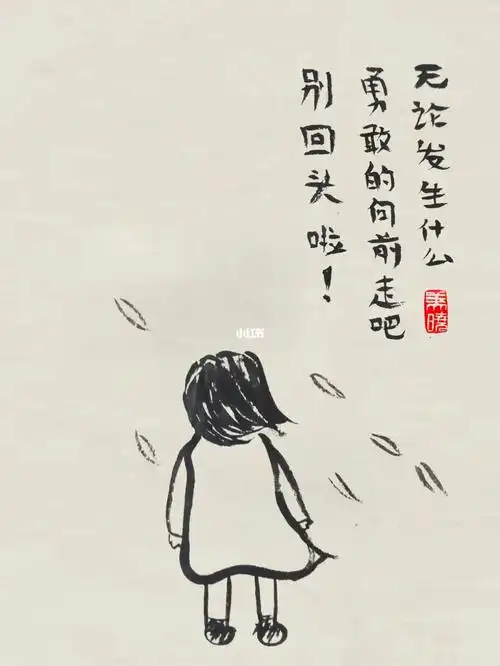 无论发生什么
勇敢的向前走吧
别回头啦！
小红书